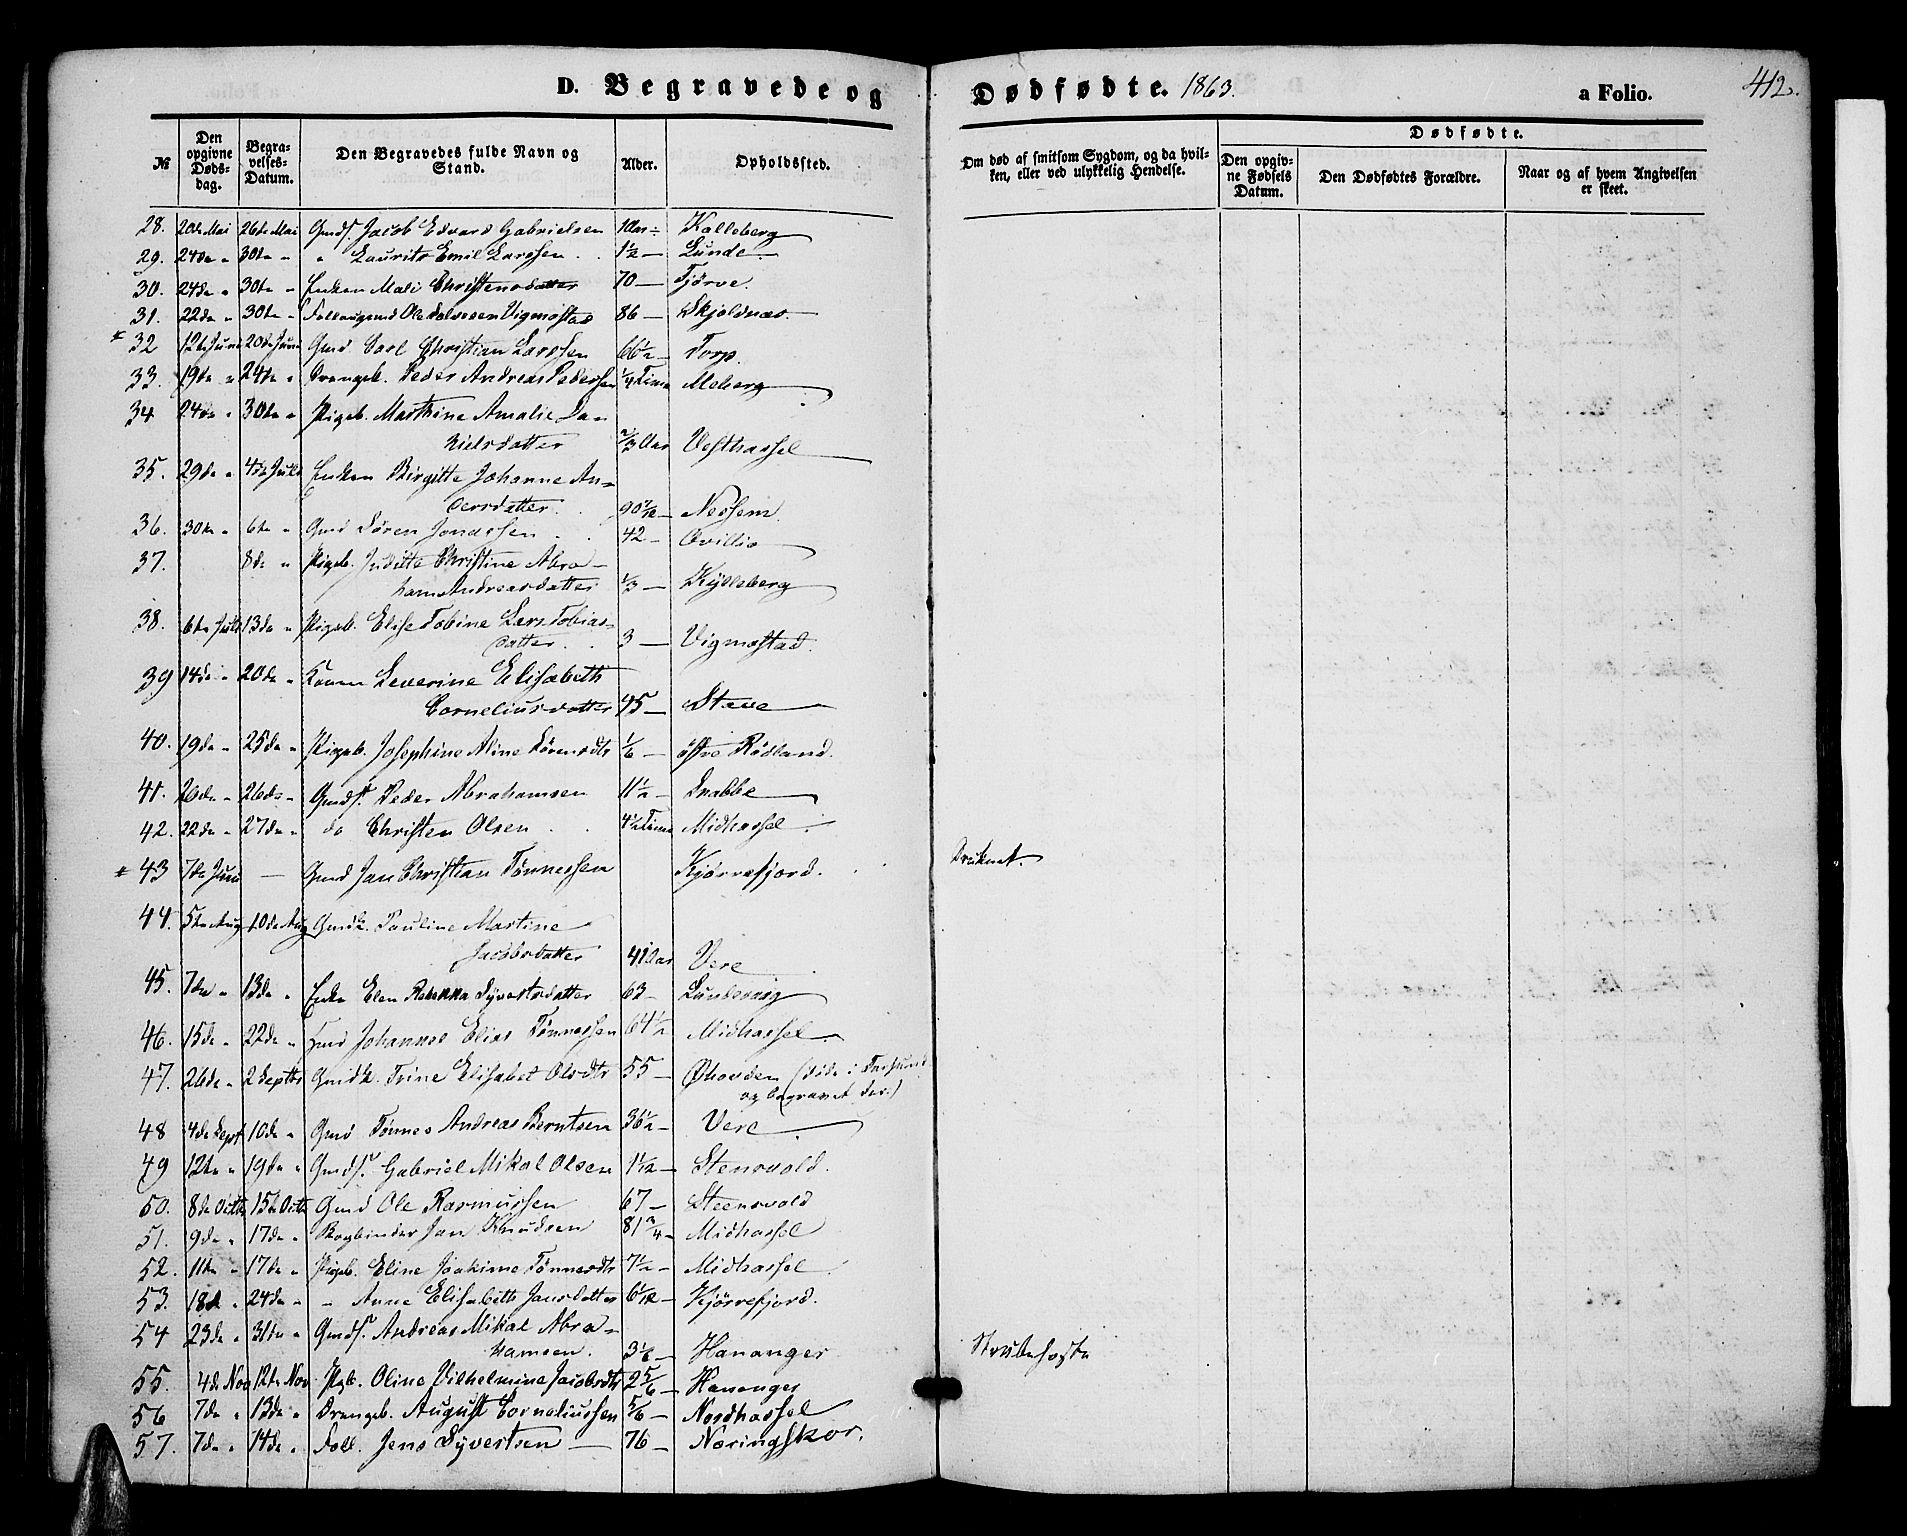 D. Begravede og Dødfødte. 1863. a Folio. 412.
№ Den opgivne Dødsdag. Begravelses-Datum. Den Begravedes fulde Navn og Stand. Alder. Opholdssted. Om død af smitsom Sygdom, og da hvilken, eller ved ulykkelig Hendelse. Dødfødte. Den opgivne Fødsels Datum. Den Dødfødtes Forældre. Naar og af hvem Angivelsen er skeet.
28. 20de Mai 26de Mai Gmds. Jacob Edvard Gabrielsen 10ar Kalleberg
29. 24de " 30te " " Laurits Emil Larssen 1½ — Lunde
30. 24de " 30te " Enken Mali Christensdatter 70 — Tjørve
31. 22de " 30te " Ole Salvesen Vigmostad 86 — Skjoldnæs
32 12te Juni 20de Juni Gmd. Carl Christian Larssen 66½ — Torp.
33. 19de " 24de " Drengeb. Peder Andreas Pedersen ¼ Time Meberg
34 24de " 30te " Pigeb. Marthine Amalie Da
nielsdatter 2/3 Aar Vesthassel
35. 29de " 4de Juli Enken Birgitte Johanne An-
dersdatter 90 — Nessem
36. 30te " 6te " Gmd Søren Jonassen 42 — Ovillie
37. 8de " Pigeb. Juditte Christine Abra-
ham Andreasdatter 1/3 — Kylleberg
38. 6te Juli 13de " Pigeb. Elise Tobine Lers Tobias-
datter 3 — Vigmostad.
39 14de " 20de " Konen Severine Elisabeth
Corneliusdatter 45 — Steve
40. 19de " 25de " Pigeb. Josephine Aline Sørensdtr 1/6 — östre Rødland.
41. 26de " 26de " Gmds. Peder Abrahamsen 11½ — Snabbe
42. 22de " 27de " do Christen Olsen 4½ Time Midhassel
43 7de Juni — Gmd Jan Christian Tønnessen Kjørrefjord. Druknet.
44. 5te Aug 10de Aug Gmdk. Pauline Martine
Jacobsdatter 41 Aar Vere
45. 7de " 13de " Enke Elen Rebekka Syvertsdatter 63 — Lundevaig
46. 15de " 22de " Gmd Johannes Elias Tønnessen 64½ Midhassel
47. 26de " 2 Septbr Gmdk. Trine Elisabet Olsdtr 55 — Øhovden (døde i Farsund
og begravet der.)
48 4de Sept 10de " Gmd Tønnes Andreas Berntsen 36½ — Vere
49 12te " 19de " Gmds. Gabriel Mikal Olsen 1½ — Stensvold.
50. 8de Octb 15de Octb Gmd Ole Rasmussen 67 — Steensvold
51. 9de " 17de " Bogbinder Jan Knudsen 81¾ — Midhassel
52. 11te " 17de " Pigeb. Eline Joakime Tønnesdtr 7½ — Midhassel
53. 18de " 24de " " Anne Elisabeth Jansdatter 6 — Kjørrefjord.
54 23de " 31te " Gmds. Andreas Mikal Abra-
hamsen. 3 1/6 — Hananger Strubehoste
55. 4de Nov 12te Nov Pigb. Oline Vilhelmine Jacobsdtr 2 5/6 — Hananger
56 7de " 13de " Drengeb. August Corneliussen 5/6 — Nordhassel
57. 7de " 14de " Foll. Jens Syvertsen — 76 — Næringskor.